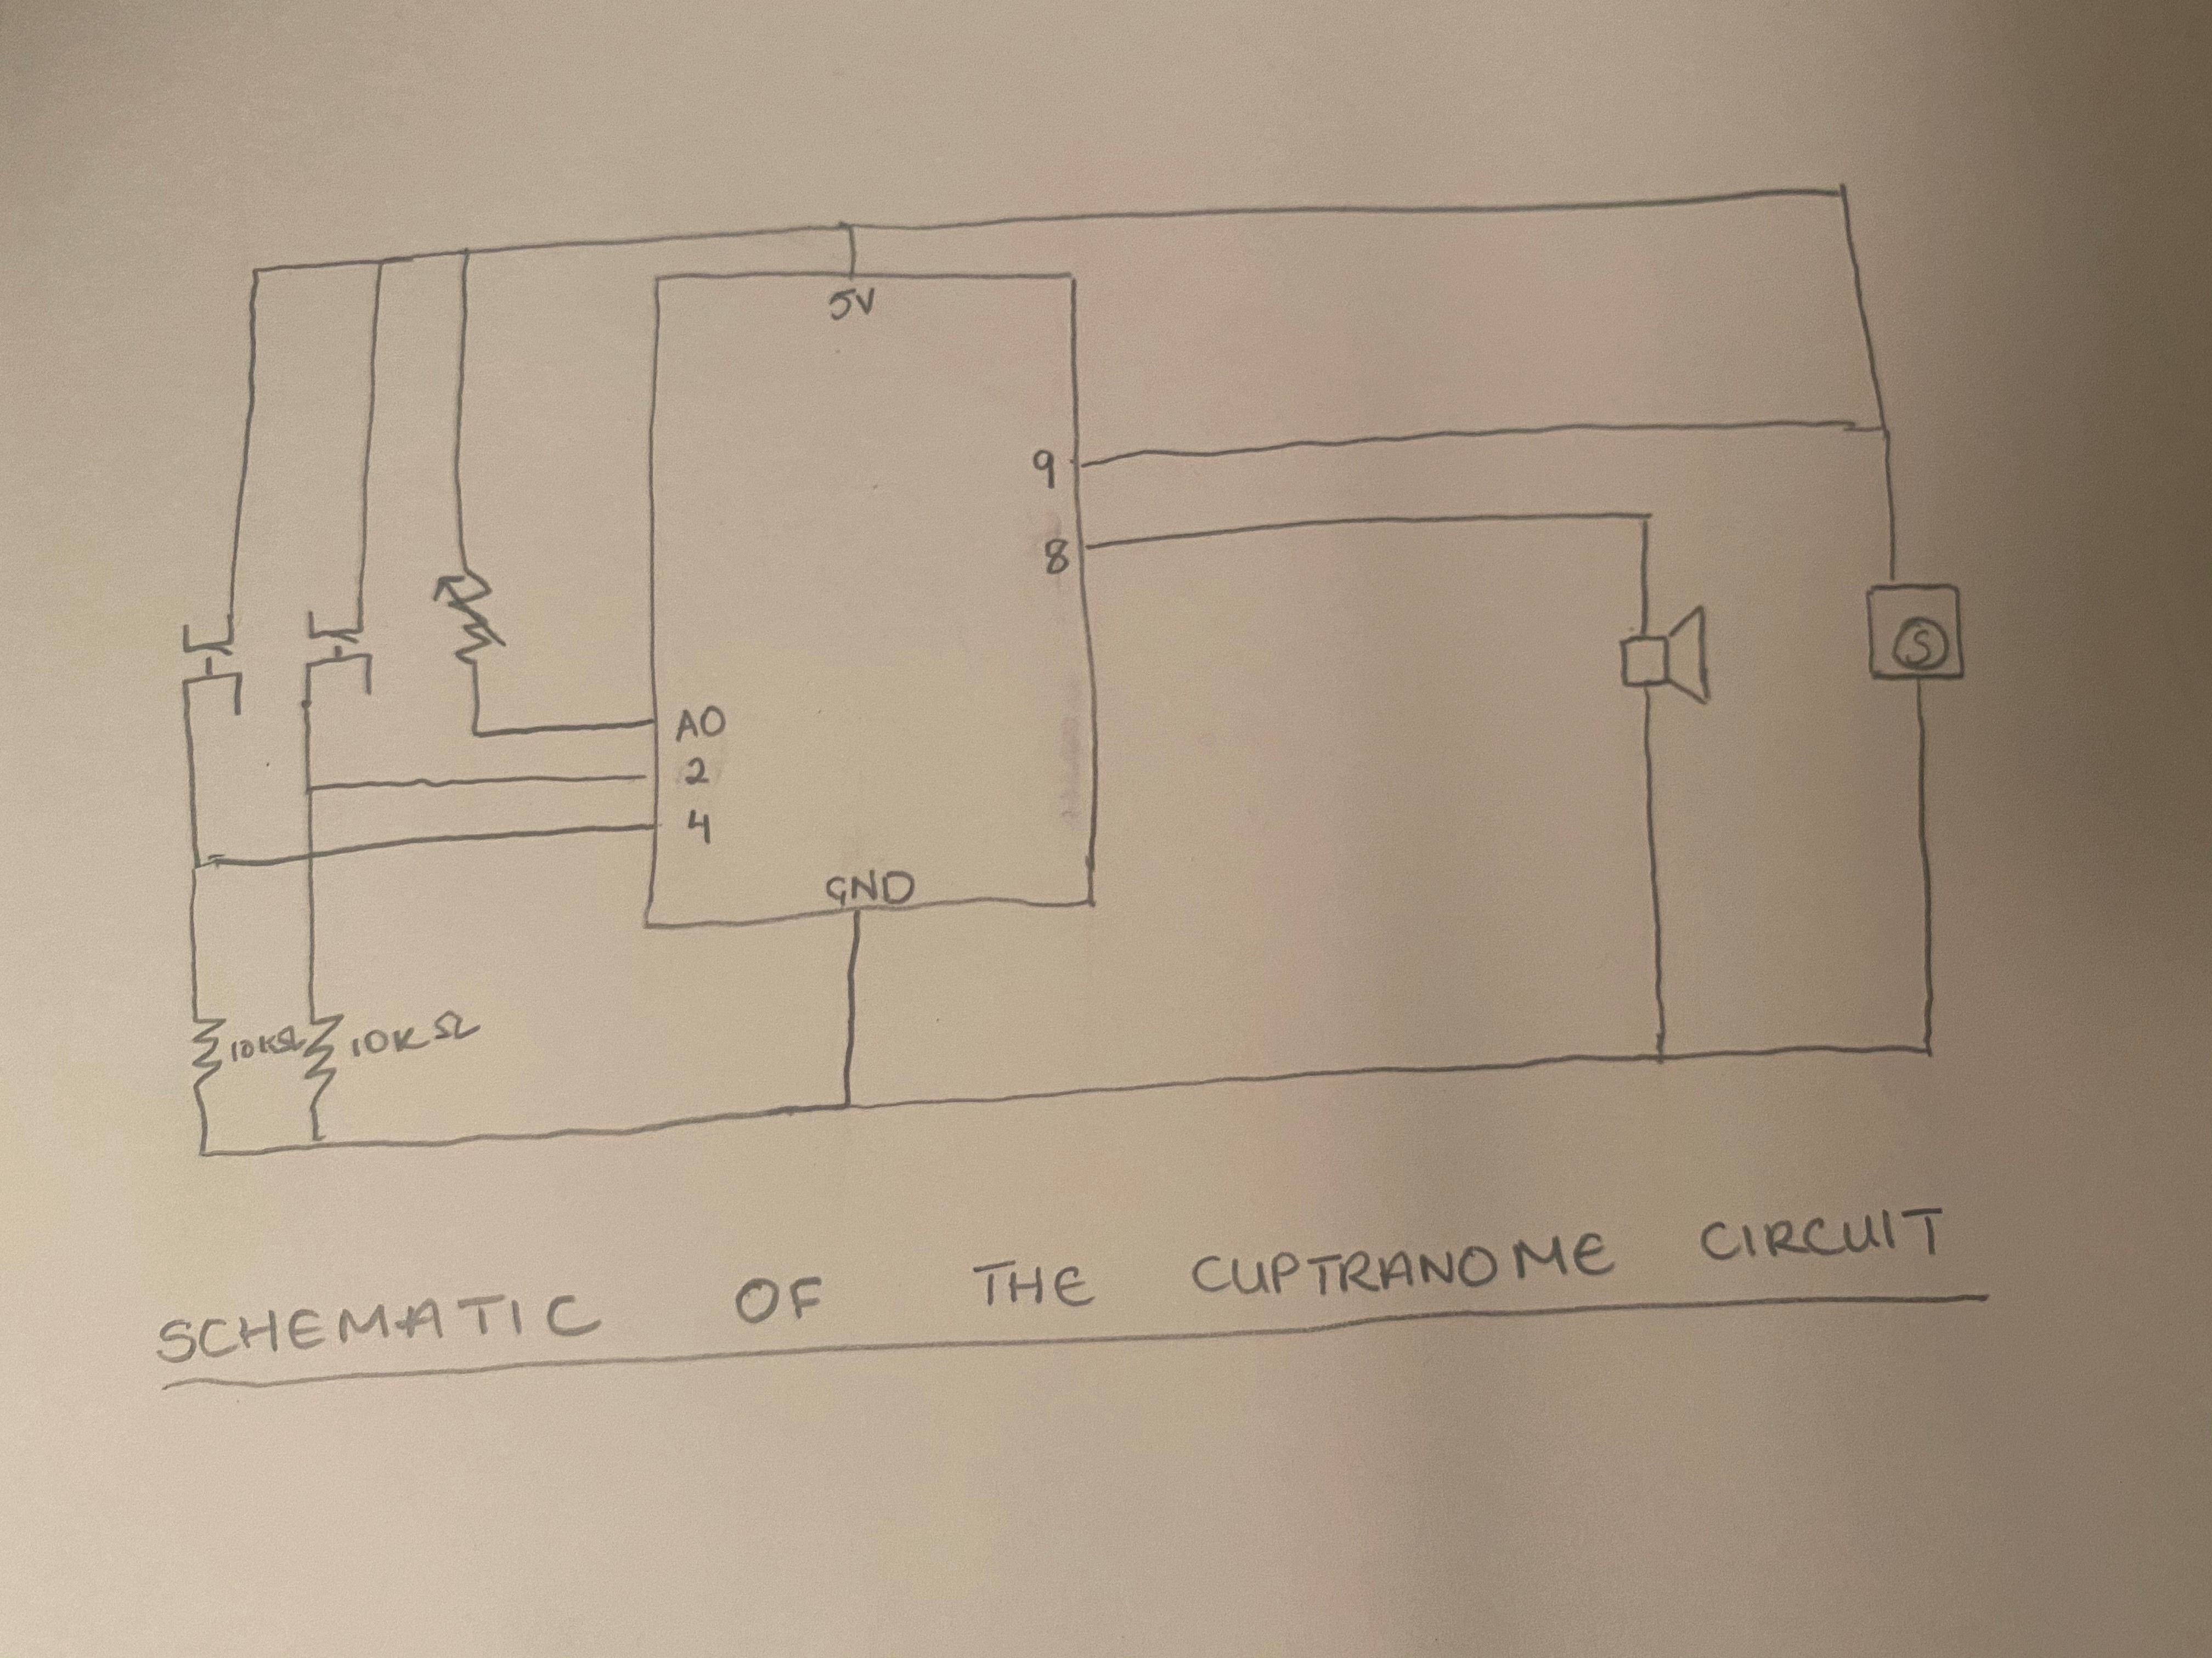 5V
9
8
S
A0
2
4
GND
10KΩ 10KΩ
SCHEMATIC OF THE CUPTRANOME CIRCUIT